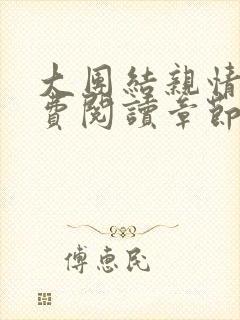 大團結親情
費閱讀章節
傅惠民